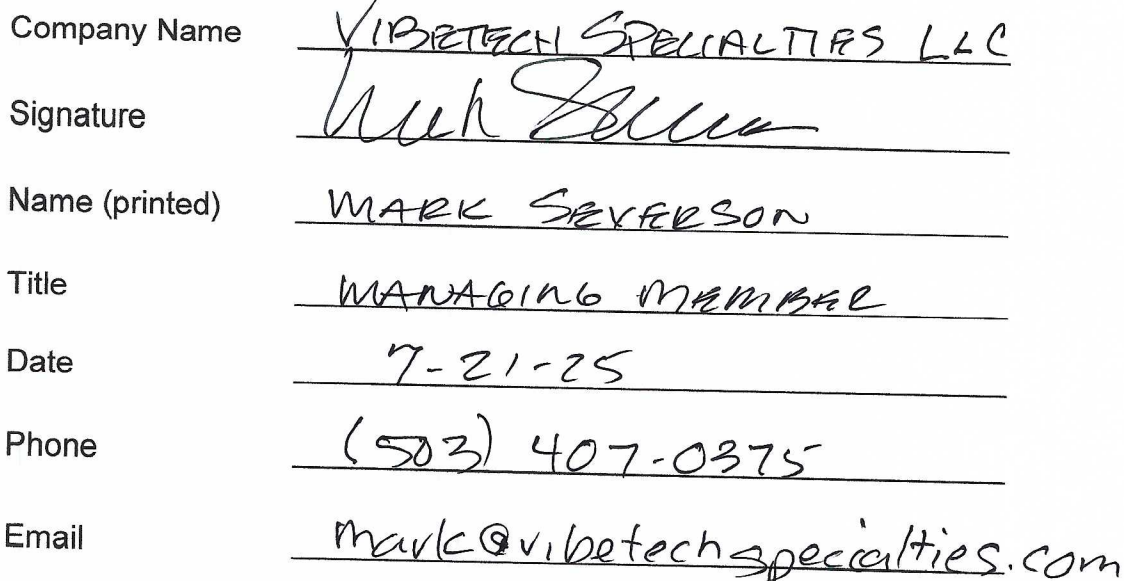 Company Name VIBETECH SPECIALTIES LLC
Signature
Name (printed) MARK SEVERSON
Title MANAGING MEMBER
Date 7-21-25
Phone (503) 407-0375
Email mark@vibetechspecialties.com